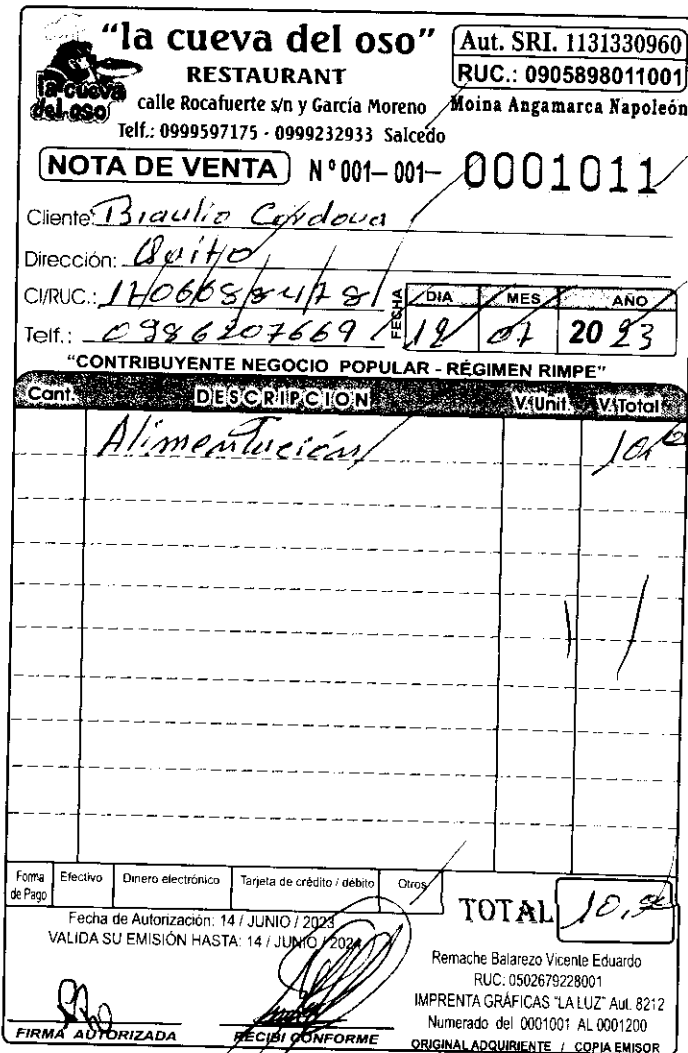 "la cueva del oso"
RESTAURANT
la cueva
del oso
calle Rocafuerte s/n y García Moreno
Telf.: 0999597175 - 0999232933 Salcedo
Aut. SRI. 1131330960
RUC.: 0905898011001
Moina Angamarca Napoleón
NOTA DE VENTA Nº 001-001- 0001011
Cliente: Braulio Cordova
Dirección: Quito
CI/RUC.: 1706688478
Telf.: 0986207669
FECHA DIA MES AÑO
12 07 2023
"CONTRIBUYENTE NEGOCIO POPULAR - RÉGIMEN RIMPE"
Cant. DESCRIPCION V. Unit. V. Total
Alimentación
Forma de Pago Efectivo Dinero electrónico Tarjeta de crédito / débito Otros
TOTAL
Fecha de Autorización: 14 / JUNIO / 2023
VALIDA SU EMISIÓN HASTA: 14 / JUNIO / 2024
FIRMA AUTORIZADA
RECIBI CONFORME
Remache Balarezo Vicente Eduardo
RUC: 0502679228001
IMPRENTA GRÁFICAS "LA LUZ" Aut. 8212
Numerado del 0001001 AL 0001200
ORIGINAL ADQUIRIENTE / COPIA EMISOR